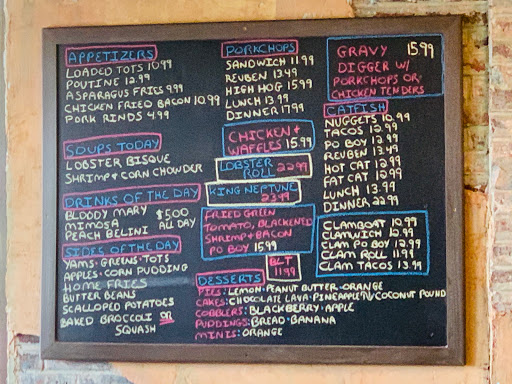 APPETIZERS
LOADED TOTS 10.99
POUTINE 12.99
ASPARAGUS FRIES 9.99
CHICKEN FRIED BACON 10.99
PORK RINDS 4.99
SOUPS TODAY
LOBSTER BISQUE
SHRIMP & CORN CHOWDER
DRINKS OF THE DAY
BLOODY MARY
MIMOSA
PEACH BELINI
$5.00
ALL DAY
SIDES OF THE DAY
YAMS · GREENS · TOTS
APPLES · CORN PUDDING
HOME FRIES
BUTTER BEANS
SCALLOPED POTATOES
BAKED BROCCOLI OR
SQUASH
PORKCHOPS
SANDWICH 11.99
REUBEN 13.49
HIGH HOG 15.99
LUNCH 13.99
DINNER 17.99
CHICKEN &
WAFFLES 15.99
LOBSTER
ROLL 22.99
KING NEPTUNE
23.99
FRIED GREEN
TOMATO, BLACKENED
SHRIMP & BACON
PO BOY 15.99
BLT
11.99
DESSERTS
PIES: LEMON · PEANUT BUTTER · ORANGE
CAKES: CHOCOLATE LAVA · PINEAPPLE COCONUT POUND
COBBLERS: BLACKBERRY · APPLE
PUDDINGS: BREAD · BANANA
MINIS: ORANGE
GRAVY 15.99
DIGGER W/
PORKCHOPS OR
CHICKEN TENDERS
CATFISH
NUGGETS 10.99
TACOS 12.99
PO BOY 12.99
REUBEN 13.49
HOT CAT 12.99
FAT CAT 12.99
LUNCH 13.99
DINNER 22.99
CLAMBOAT 10.99
CLAMWICH 12.99
CLAM PO BOY 12.99
CLAM ROLL 11.99
CLAM TACOS 13.99